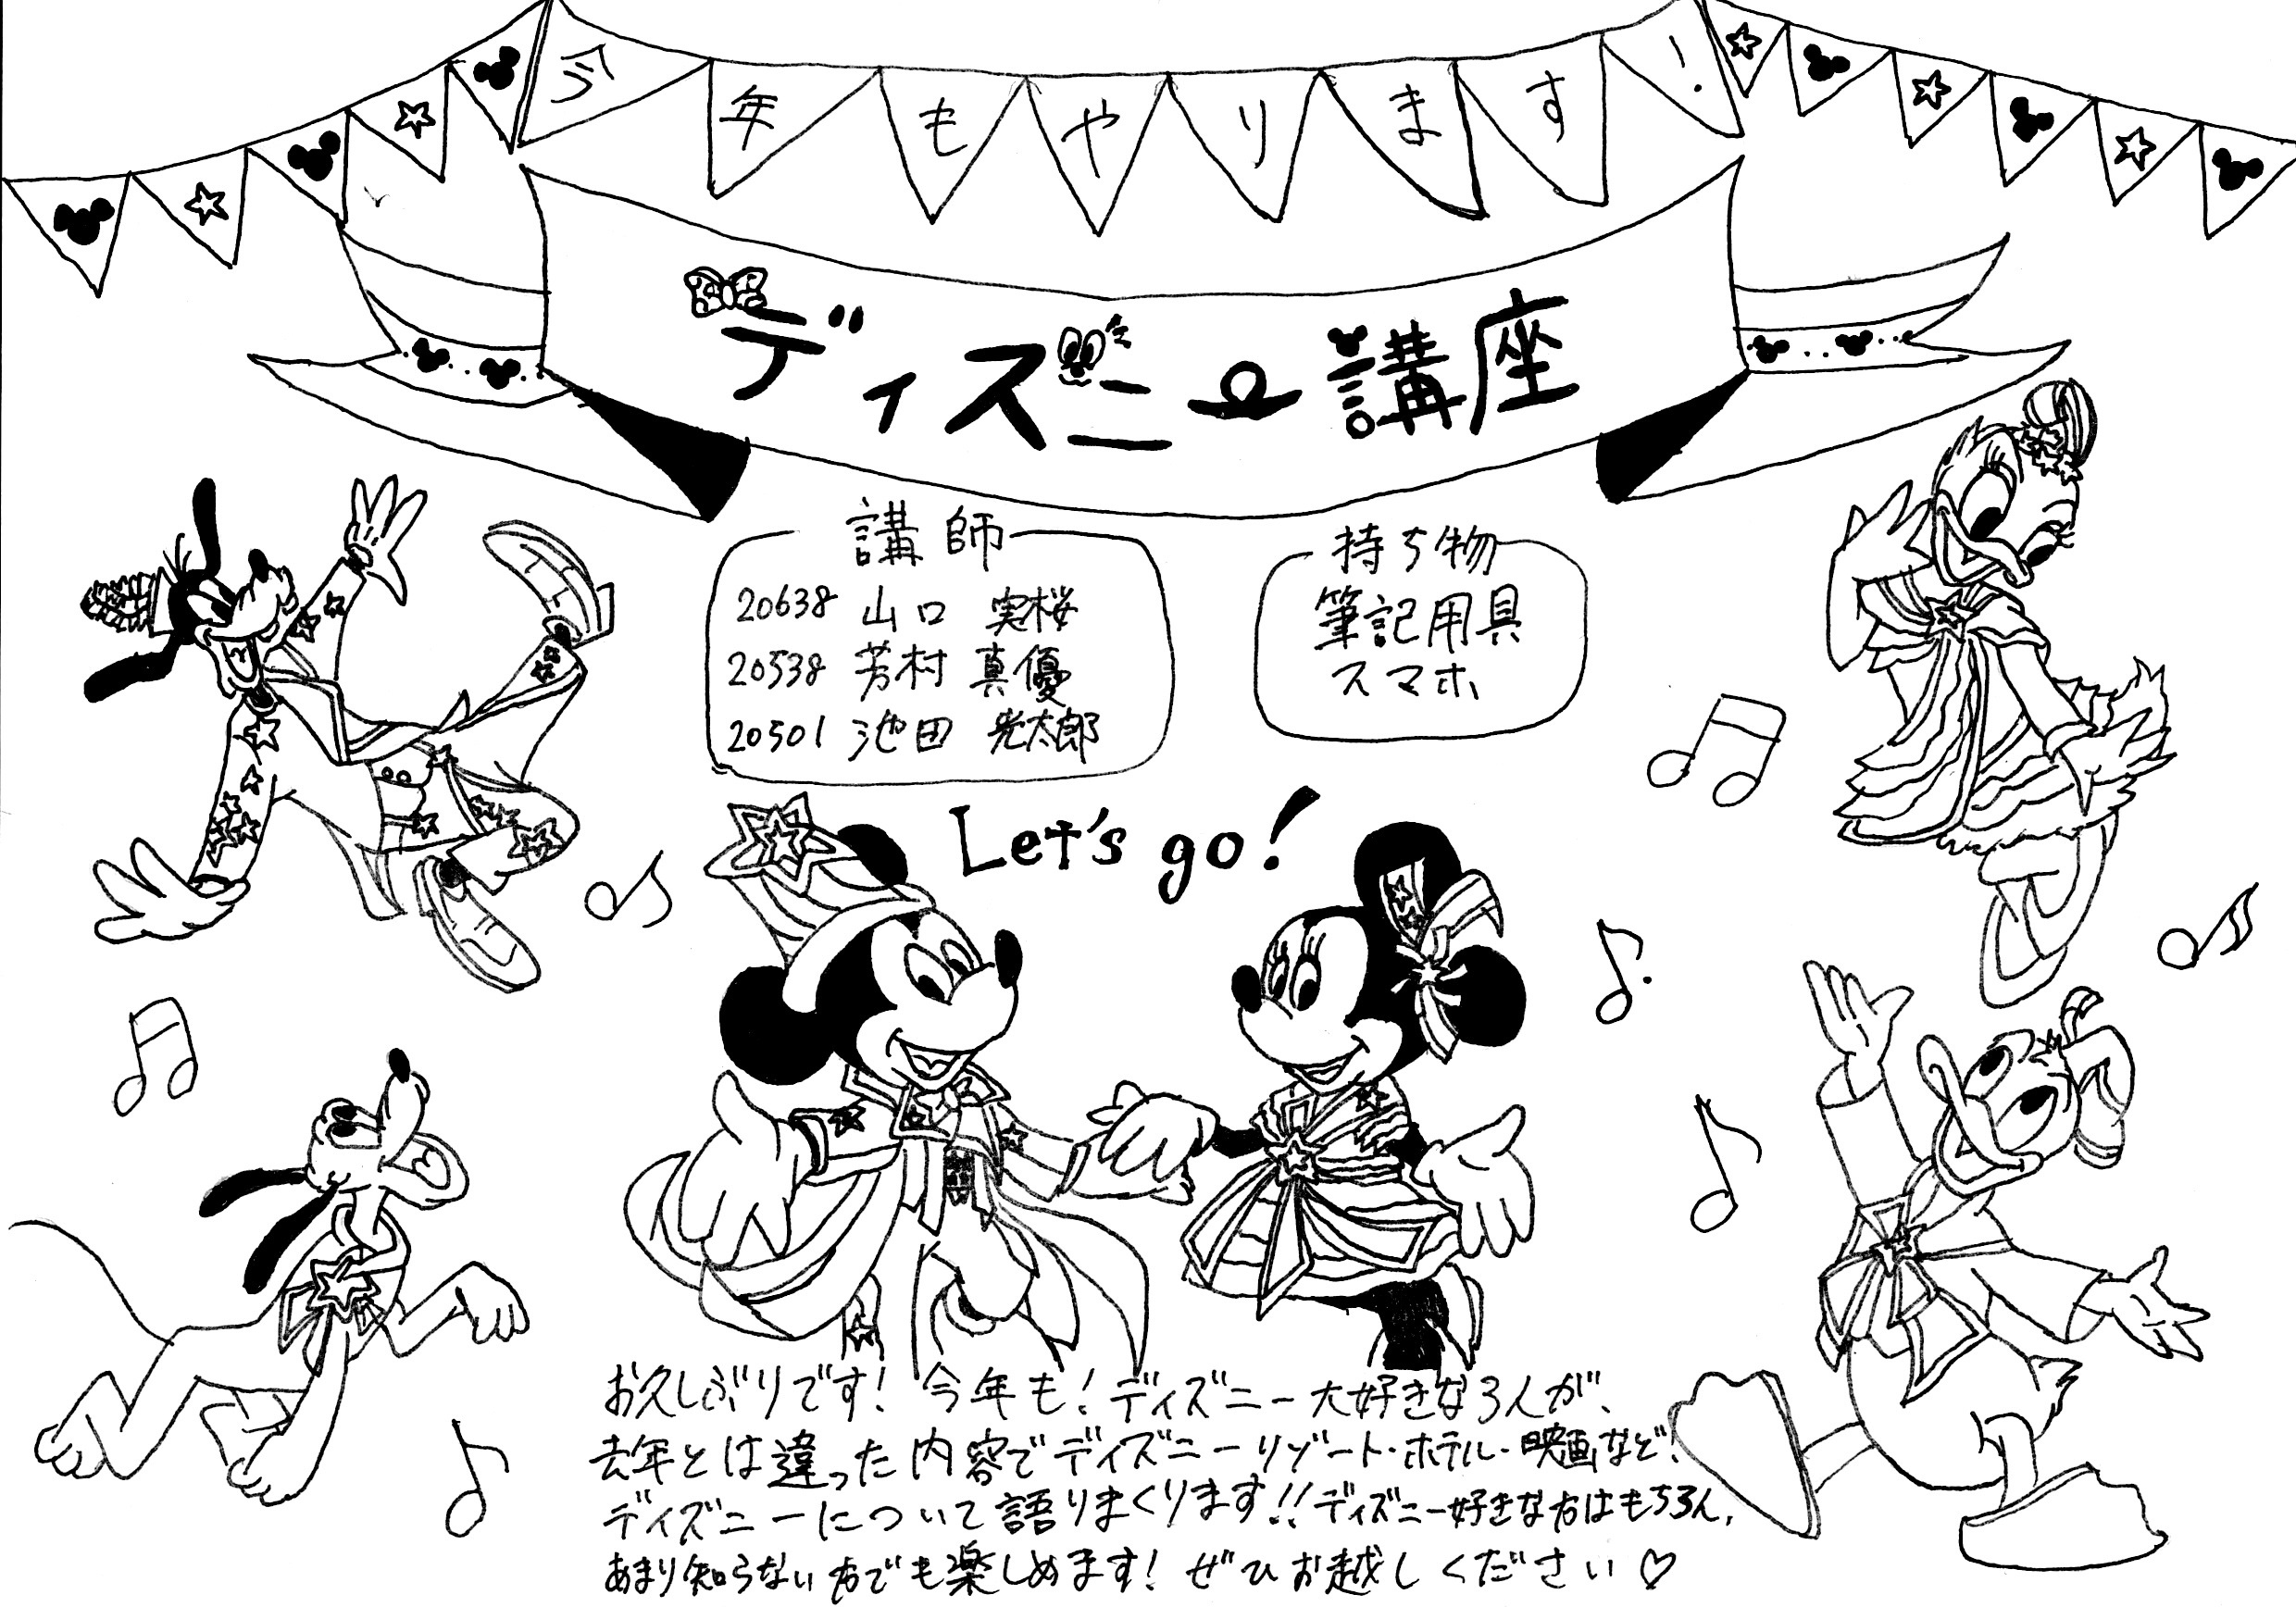 今年もやります!
ディズニー講座
講師
20638 山口 実桜
20538 芳村 真優
20501 池田 光太郎
持ち物
筆記用具
スマホ
Let's go!
お久しぶりです! 今年も!ディズニー大好きな3人が、
去年とは違った内容でディズニーリゾート・ホテル・映画など、
ディズニーについて語りまくります!!ディズニー好きな方はもちろん、
あまり知らない方でも楽しめます! ぜひお越しください♡